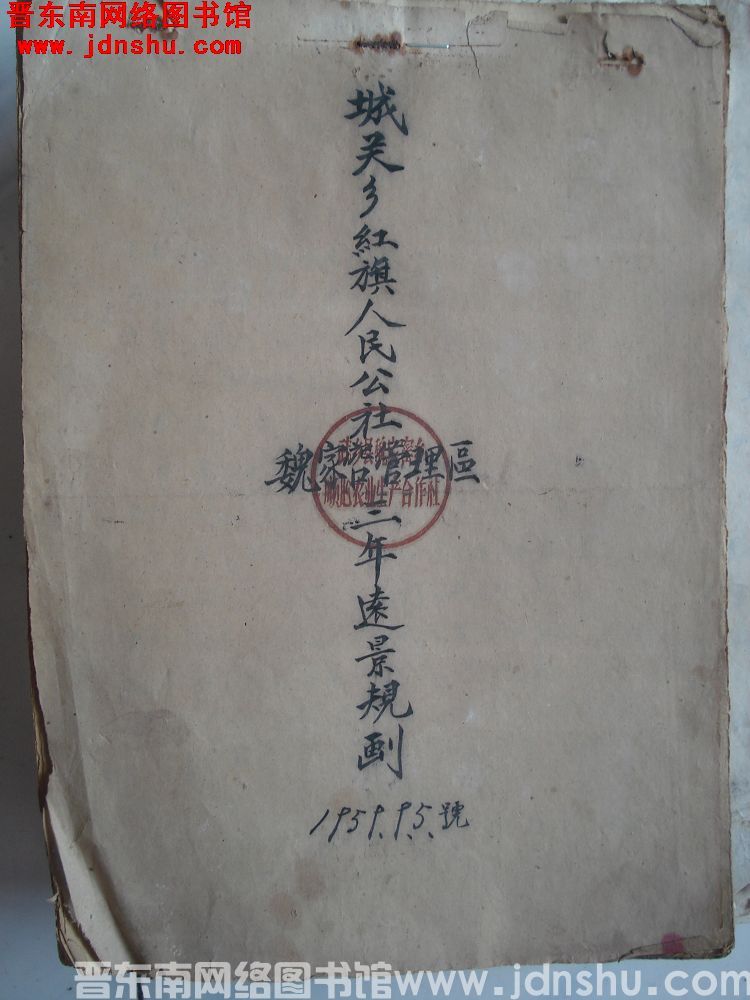 晋东南网络图书馆
www.jdnshu.com
城关乡紅旗人民公社
魏家窑管理區
三年遠景規劃
1959.9.5.號
农业生产合作社
晋东南网络图书馆www.jdnshu.com